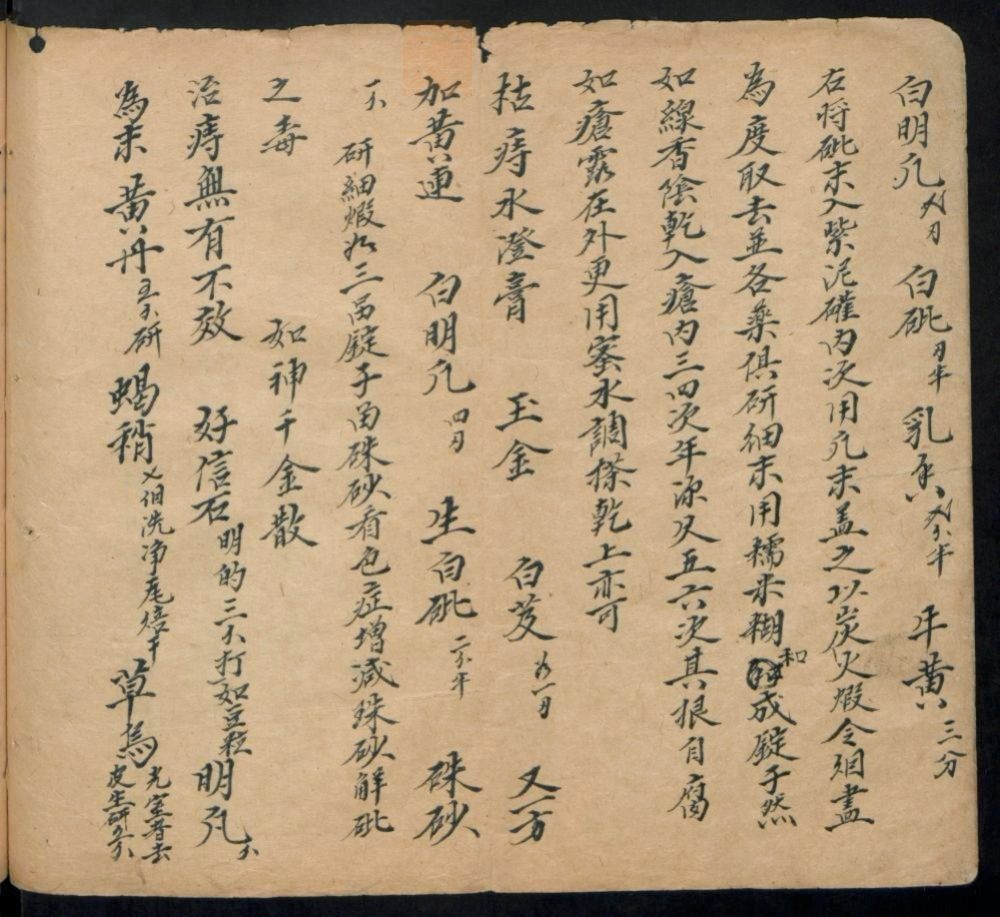 白明凡 刄 白砒 刄半 乳香 半 牛黃 三分
右將砒末入紫泥礶內次用凡末盖之以炭火煆令烟盡
為度取去並各藥俱硏細末用糯米糊和成錠子然
如線香陰乾入瘡內三四次年深久五六次其根自腐
如瘡露在外更用蜜水調搽乾上亦可
枯痔水澄膏 玉金 白芨 各一刄 又一方
加黃連 白明凡 四刄 生白砒 二半 硃砂
硏細煆 三 錠子 硃砂看色症增減硃砂解砒
之毒 如神千金散
治痔無有不效 好信石 明的三 打如豆粒 明凡
為末 黃丹 五 硏 蝎稍 七個洗净尾焙干 草烏 光室者去皮生硏